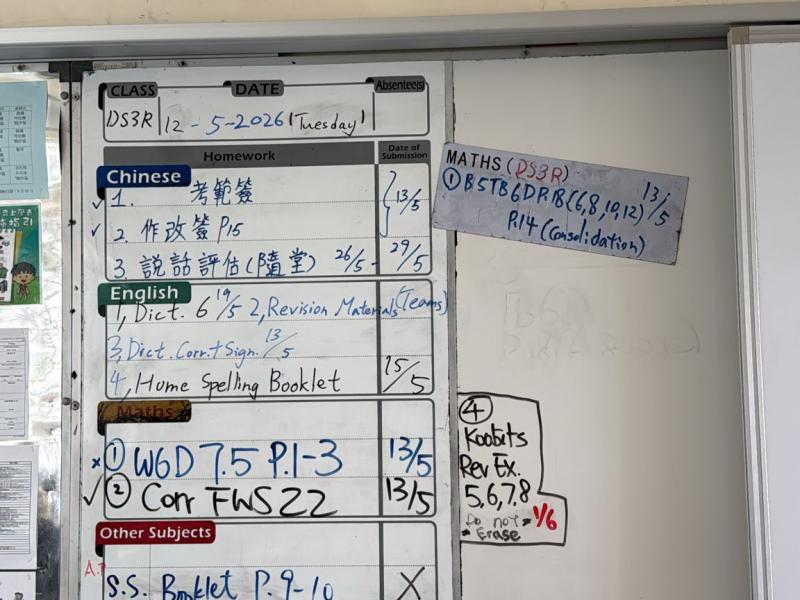 CLASS DATE Absentee(s)
DS3R 12-5-2026 (Tuesday)
Homework Date of Submission
Chinese
✓ 1. 考範簽 } 13/5
✓ 2. 作改簽 P15
3. 説話評估(隨堂) 26/5 - 29/5
English
1, Dict. 6 19/5 2, Revision Materials (Teams)
3, Dict. Corr. + Sign. 13/5
4, Home Spelling Booklet 15/5
Maths
× ① W6D 7.5 P.1-3 13/5
✓ ② Corr FWS 22 13/5
Other Subjects
S.S. Booklet P.9-10 X
MATHS (DS3R)
① B5TB6D P.18 (6,8,10,12) 13/5
P.14 (Consolidation)
④
Koobits
Rev Ex.
5,6,7,8
Do not 1/6
Erase